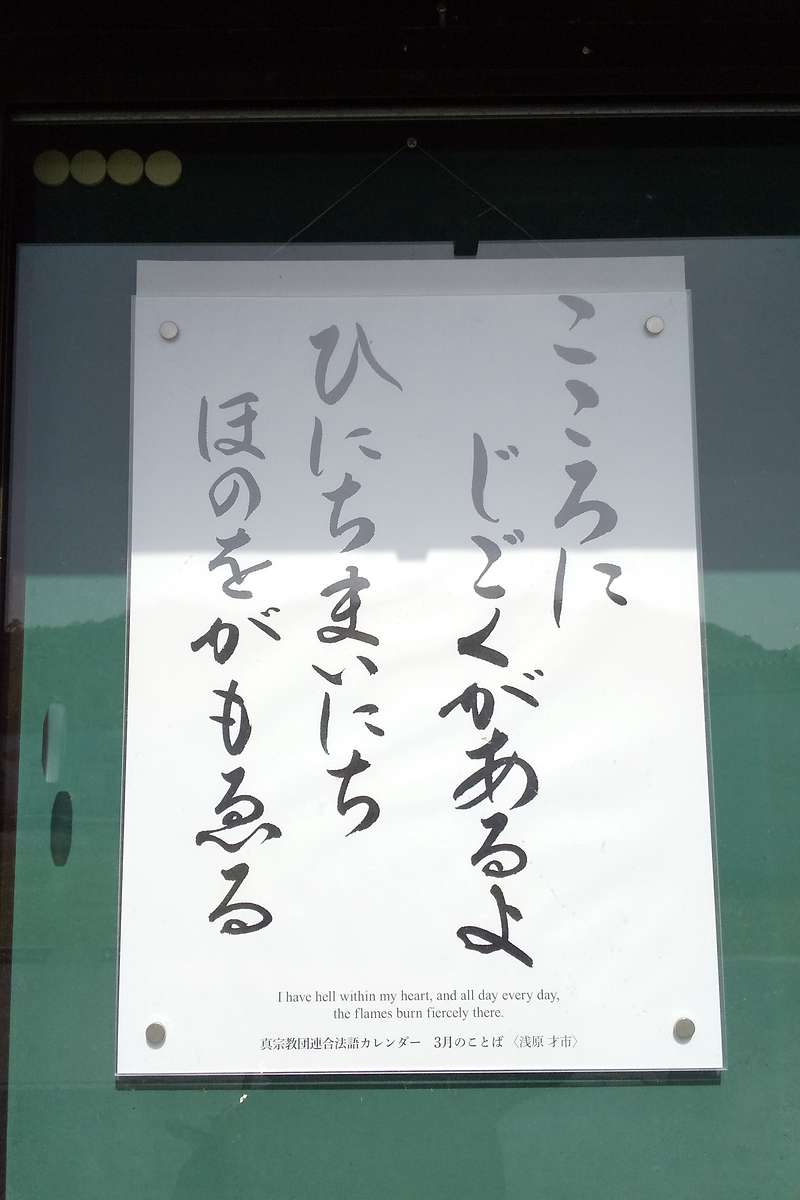 こころに
じごくがあるよ
ひにちまいにち
ほのをがもゑる
I have hell within my heart, and all day every day,
the flames burn fiercely there.
真宗教団連合法語カレンダー　3月のことば〈浅原 才市〉